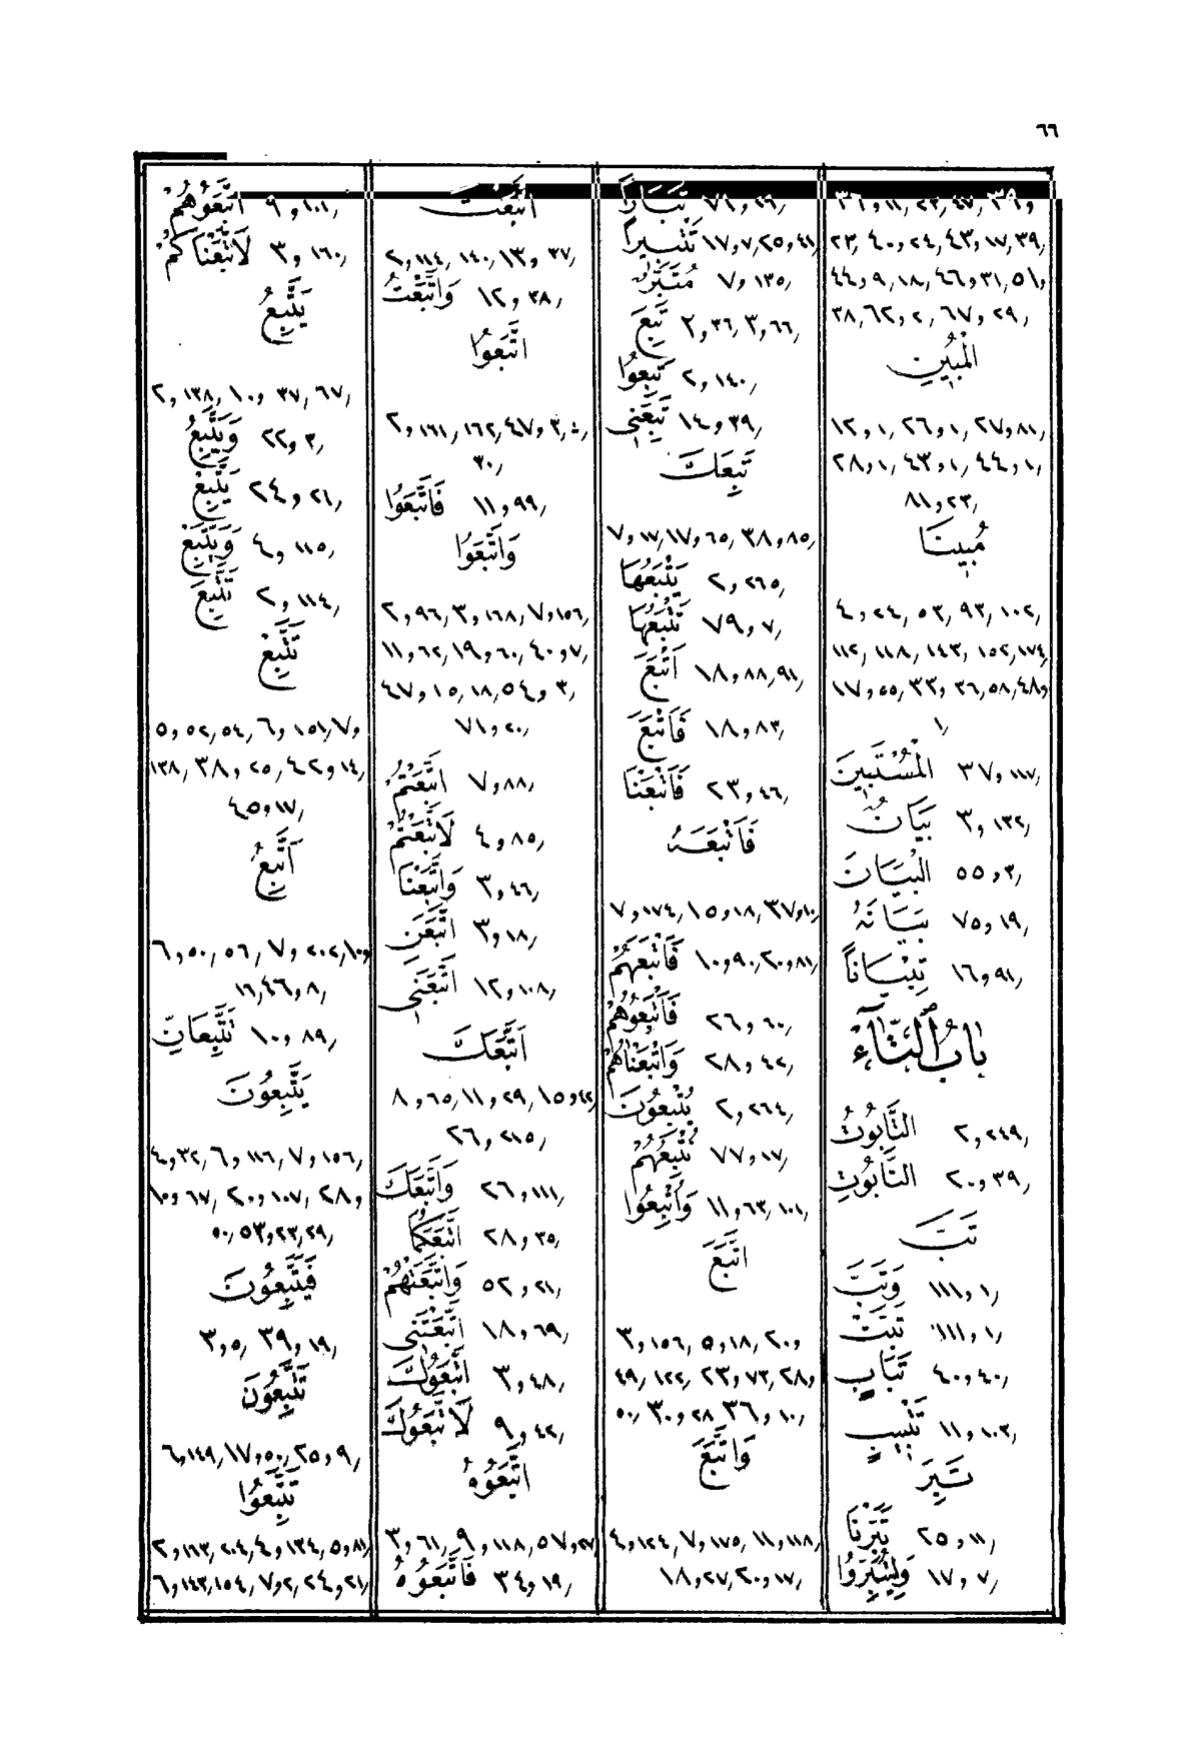 ٦٦
٢٣ر٤٠و٢٤ر٤٣و١٧ر٣٩ر
٤٤و٩ر١٨ر٤٦و٣١ر٥١و
٣٨ر٦٢و٢ر٦٧و٢٩ر
الْمُبِينِ
١٢و١ر٢٦و١ر٢٧و٨١ر
٢٨و١ر٤٣و١ر٤٤و١ر
٨١و٢٣ر
مُبِينًا
٤و٢٤ر٥٣ر٩٣ر١٠٢ر
١١٢ر١١٨ر١٤٣ر١٥٢ر١٧٤ر
١٧و٥٥ر٣٣و٣٦ر٥٨ر٤٨و
١ر
الْمُسْتَبِينَ ٣٧و١١٧ر
بَيَانٌ ٣و١٣٢ر
الْبَيَانَ ٥٥و٣ر
بَيَانَهُ ٧٥و١٩ر
تِبْيَانًا ١٦و٩١ر
بابُ التّاء
التَّابُوتُ ٢و٢٤٩ر
التَّابُوتِ ٢٠و٣٩ر
تَبَّ
وَتَبَّ ١١١و١ر
تَبَّتْ ١١١و١ر
تَبَابٍ ٤٠و٤٠ر
تَتْبِيبٍ ١١و١٠٣ر
تَبِرَ
تَبَّرْنَا ٢٥و١١ر
وَلِيُتَبِّرُوا ١٧و٧ر
تَبَارًا ٧١و٢٩ر
تَتْبِيرًا ١٧و٧ر٢٥و٤١ر
مُتَبَّرٌ ٧و١٣٥ر
تَبِعَ ٢و٣٦ر٣و٦٦ر
تَبِعُوا ٢و١٤٠ر
تَبِعَنِي ١٤و٣٩ر
تَبِعَكَ
٧و١٧ر١٧و٦٥ر٣٨و٨٥ر
يَتْبَعُهَا ٢و٢٦٥ر
تَتْبَعُهَا ٧٩و٧ر
أَتْبَعَ ١٨و٨٨ر٩١ر
فَأَتْبَعَ ١٨و٨٣ر
فَأَتْبَعْنَا ٢٣و٤٦ر
فَأَتْبَعَهُ
٧و١٧٤ر١٥و١٨ر٣٧و١٠ر
فَأَتْبَعَهُمْ ١٠و٩٠ر٢٠و٨١ر
فَأَتْبَعُوهُمْ ٢٦و٦٠ر
وَأَتْبَعْنَاهُمْ ٢٨و٤٢ر
يُتْبِعُونَ ٢و٢٦٤ر
نُتْبِعُهُمْ ٧٧و١٧ر
وَأُتْبِعُوا ١١و٦٣ر١٠١ر
اتَّبَعَ
٣و١٥٦ر٥و١٨ر٢٠و
٤٩ر١٢٢ر٢٣و٧٣ر٢٨و
٥٠ر٣٠و٢٨ر٣٦و١٠ر
وَاتَّبَعَ
٤و١٢٤ر٧و١٧٥ر١١و١١٨ر
١٨و٢٧ر٢٠و١٧ر
اتَّبَعْتَ
٢و١١٤ر١٤٠ر١٣و٣٧ر
وَاتَّبَعْتُ ١٢و٣٨ر
اتَّبَعُوا
٢و١٦١ر١٦٢ر٤٧و٣ر
٣٠ر
فَاتَّبَعُوا ١١و٩٩ر
وَاتَّبَعُوا
٢و٩٦ر٣و١٦٨ر٧و١٥٦ر
١١و٦٢ر١٩و٦٠ر٤٠و٧ر
٤٧و١٥ر١٨ر٥٤و٣ر
٧١و٢٠ر
اتَّبَعْتُمْ ٧و٨٨ر
لَاتَّبَعْتُمْ ٤و٨٥ر
وَاتَّبَعْنَا ٣و٤٦ر
اتَّبَعَنِ ٣و١٨ر
اتَّبَعَنِي ١٢و١٠٨ر
اتَّبَعَكَ
٨و٦٥ر١١و٢٩ر١٥و٤٢ر
٢٦و٢١٥ر
وَاتَّبَعَكَ ٢٦و١١١ر
اتَّبَعَكُمَا ٢٨و٣٥ر
وَاتَّبَعَتْهُمْ ٥٢و٢١ر
اتَّبَعْتَنِي ١٨و٦٩ر
اتَّبَعُوكَ ٣و٤٨ر
لَاتَّبَعُوكَ ٩و٤٢ر
اتَّبَعُوهُ
٣و٦١ر٩و١١٨ر٥٧و٢٧ر
فَاتَّبَعُوهُ ٣٤و١٩ر
اتَّبَعُوهُمْ ٩و١٠١ر
لَاتَّبَعْنَاكُمْ ٣و١٦٠ر
يَتَّبِعُ
٢و١٣٨ر١٠و٣٧ر٦٧ر
وَيَتَّبِعُ ٢٢و٣ر
يَتَّبِعْ ٢٤و٢١ر
وَيَتَّبِعْ ٤و١١٥ر
تَتَّبِعَ ٢و١١٤ر
تَتَّبِعْ
٥و٥٢ر٥٤ر٦و١٥١ر٧و
١٣٨ر٣٨و٢٥ر٤٢و١٤ر
٤٥و١٧ر
أَتَّبِعُ
٦و٥٠ر٥٦ر٧و٢٠٢ر١٠و
١٦ر٤٦و٨ر
تَتَّبِعَانِّ ١٠و٨٩ر
يَتَّبِعُونَ
٤و٣٢ر٦و١١٦ر٧و١٥٦ر
١٠و٦٧ر٢٠و١٠٧ر٢٨و
٥٠ر٥٣و٢٣ر٢٩ر
فَيَتَّبِعُونَ
٣و٥ر٣٩و١٩ر
تَتَّبِعُونَ
٦و١٤٩ر١٧و٥٠ر٢٥و٩ر
تَتَّبِعُوا
٢و١٦٣ر٢٠٤ر٤و١٣٤ر٥و٨١ر
٦و١٤٣ر١٥٤ر٧و٢ر٢٤و٢١ر